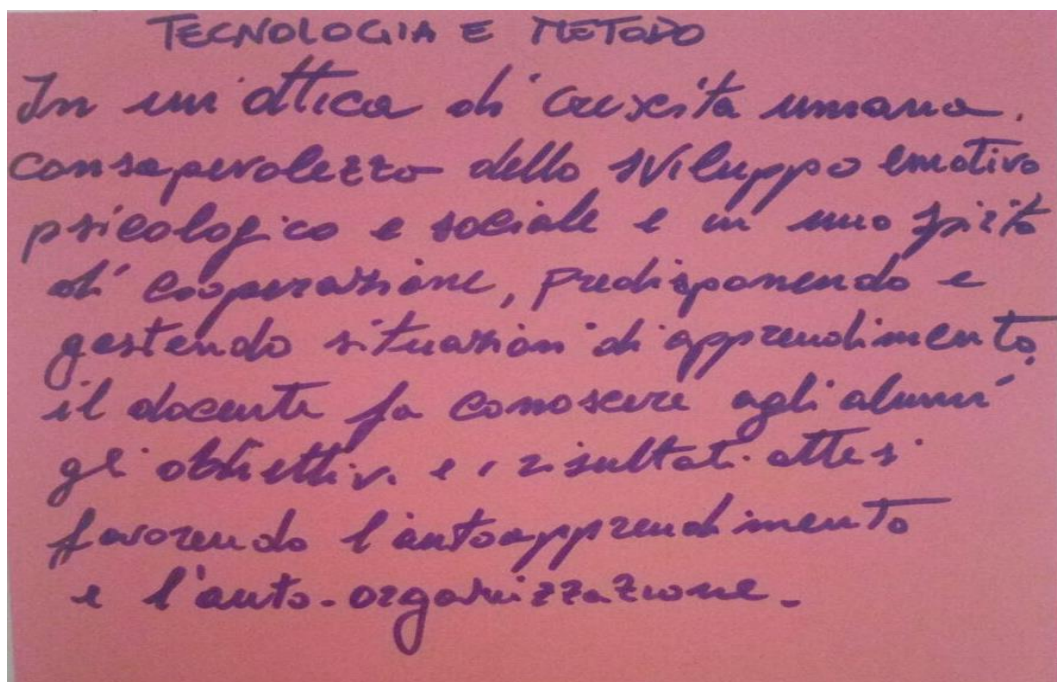 TECNOLOGIA E METODO
In un'ottica di crescita umana.
consapevolezza dello sviluppo emotivo
psicologico e sociale e in uno spirito
di cooperazione, predisponendo e
gestendo situazioni di apprendimento,
il docente fa conoscere agli alunni
gli obbiettivi e i risultati attesi
favorendo l'autoapprendimento
e l'auto-organizzazione.